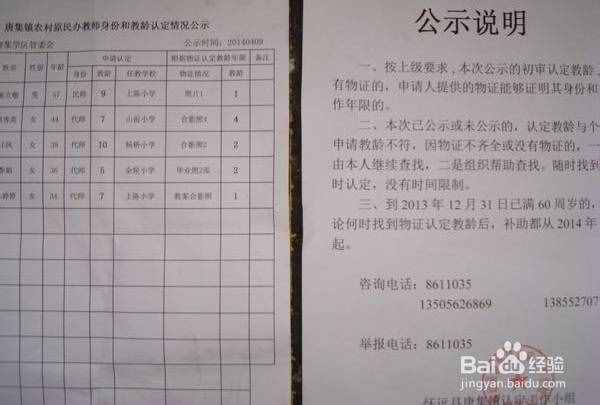 唐集镇农村原民办教师身份和教龄认定情况公示
集学区管委会 公示时间：20140409
性别 年龄 申请认定 根据物证认定教龄年限 备注
身份 教龄 任教学校 物证情况 教龄
男 57 民师 9 上陈小学 照片1 1
女 44 代师 7 山前小学 合影照4 4
女 38 代师 10 杨桥小学 合影照2 2
女 34 代师 5 小学 毕业照2张 2
女 36 代师 7 上陈小学 教案合影照 1
公示说明
一、按上级要求，本次公示的初审认定教龄，
有物证的，申请人提供的物证能够证明其身份和
作年限的。
二、本次已公示或未公示的，认定教龄与个
申请教龄不符，因物证不齐全或没有物证的，一
由本人继续查找，二是组织帮助查找。随时找到
时认定，没有时间限制。
三、到 2013 年 12 月 31 日已满 60 周岁的，
论何时找到物证认定教龄后，补助都从 2014 年
起。
咨询电话：8611035
13505626869 138552707
举报电话：8611035
怀远县唐集镇认定工作小组
Baidu 经验
jingyan.baidu.com